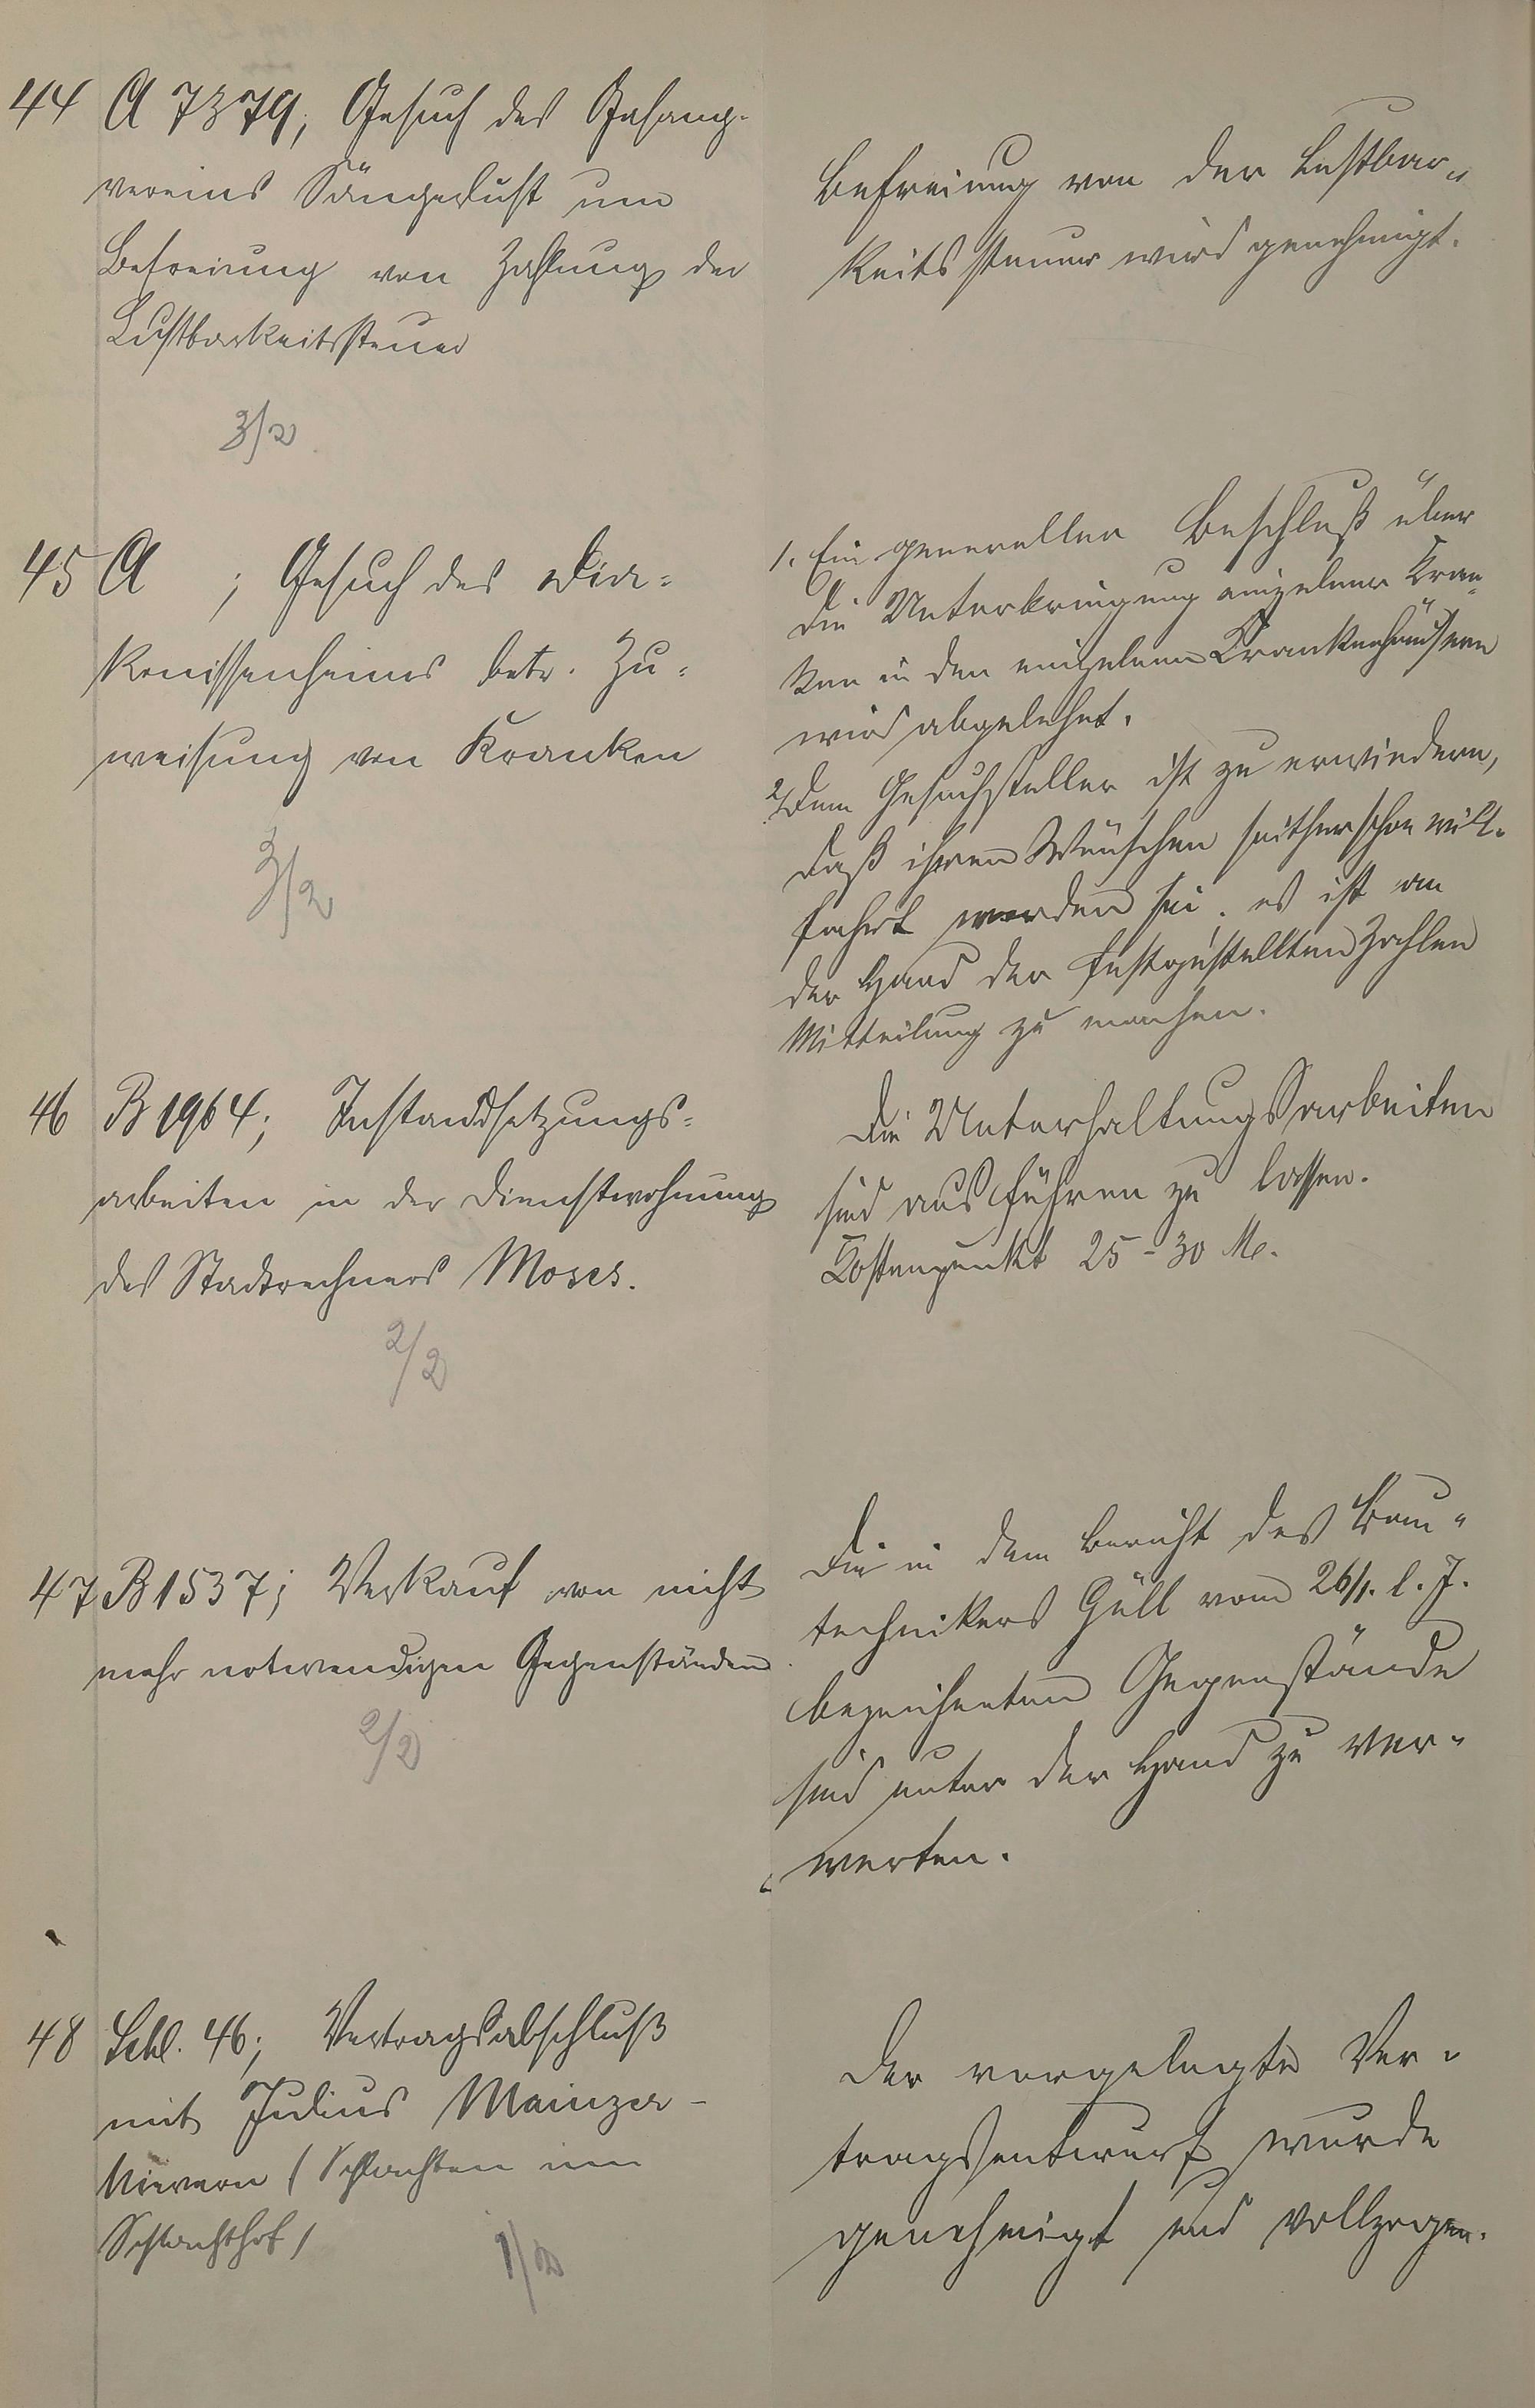 44 A 7379, Gesuch des Gesang-
vereins Sängerlust um
Befreiung von Zahlung der
Lustbarkeitssteuer
3/2
Befreiung von der Lustbar„
keitssteuer wird genehmigt.
45 A ; Gesuch des Dia=
konissenheims betr. Zu=
weisung von Kranken
3/2
1. Ein genereller Beschluß über
die Unterbringung einzelner Kran„
ken in den einzelnen Krankenhäusern
wird abgelehnt.
2. Dem Gesuchsteller ist zu erwiedern,
daß ihren Wünschen seither schon will-
fahrt worden sei. es ist an
der Hand der festgestellten Zahlen
Mitteilung zu machen.
46 B 1964; Instandsetzungs=
arbeiten in der Dienstwohnung
des Stadtrechners Moses.
2/2
Die Unterhaltungsarbeiten
sind ausführen zu lassen.
Kostenpunkt 25-30 M.
47 B 1537; Verkauf von nicht
mehr notwendigen Gegenständen
2/2
Die in dem Bericht des Bau„
technikers Güll vom 26/1. l. J.
bezeichneten Gegenstände
sind unter der Hand zu ver„
werten.
48 Schl. 46; Vertragsabschluß
mit Julius Mainzer-
Nievern (Schlachten im
Schlachthof)
1/2
Der vorgelegte Ver„
tragsentwurf wurde
genehmigt und vollzogen.